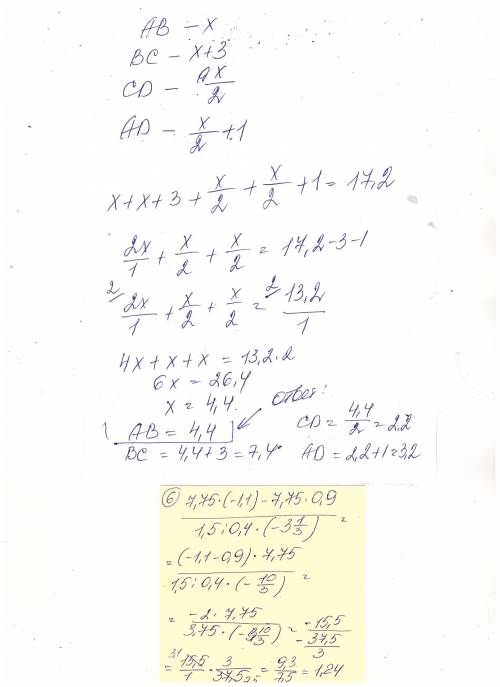 AB – x
BC – x+3
CD – x/2
AD – x/2 + 1
x + x + 3 + x/2 + x/2 + 1 = 17,2
2x/1 + x/2 + x/2 = 17,2 – 3 – 1
2/ 2x/1 + x/2 + x/2 = 2/ 13,2/1
4x + x + x = 13,2 · 2
6x = 26,4
x = 4,4.
Ответ:
AB = 4,4
CD = 4,4/2 = 2,2
BC = 4,4 + 3 = 7,4
AD = 2,2 + 1 = 3,2
6 7,75 · (-1,1) – 7,75 · 0,9 / 1,5 : 0,4 · (-3 1/3) =
= (-1,1 – 0,9) · 7,75 / 1,5 : 0,4 · (- 10/3) =
= -2 · 7,75 / 3,75 · (- 10/3) = -15,5 / - 37,5/3
= 3,1 15,5/1 · 3/37,5 7,5 = 9,3/7,5 = 1,24